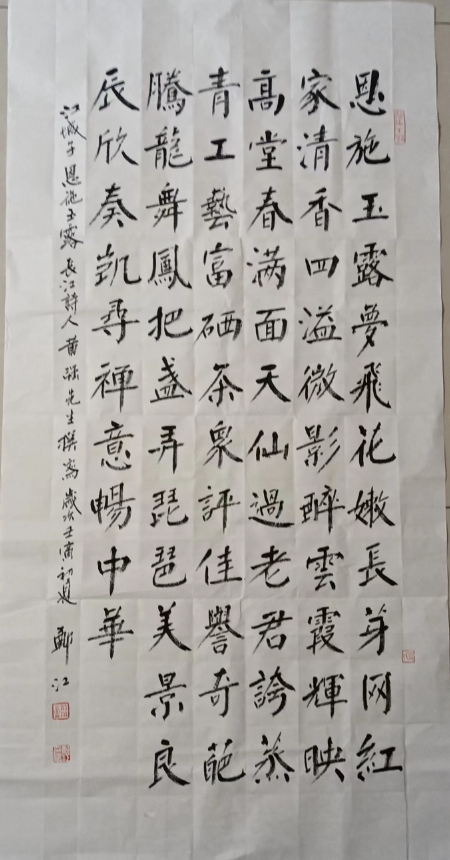 恩施玉露夢飛花嫩長芽网紅
家清香四溢微影醉雲霞輝映
高堂春满面天仙過老君誇蒸
青工藝富硒茶衆評佳譽奇葩
騰龍舞鳳把盏弄琵琶美景良
辰欣奏凯尋禅意暢中華
江城子恩施玉露長江詩人黄强先生撰寫歲次壬寅初夏 鄭江